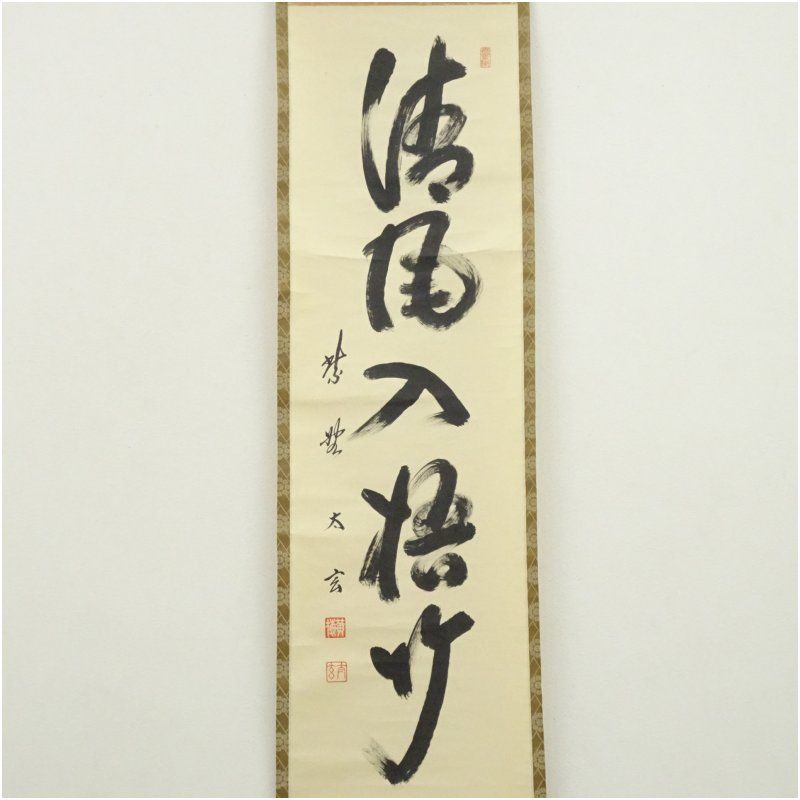 清風入梧竹
紫野太玄